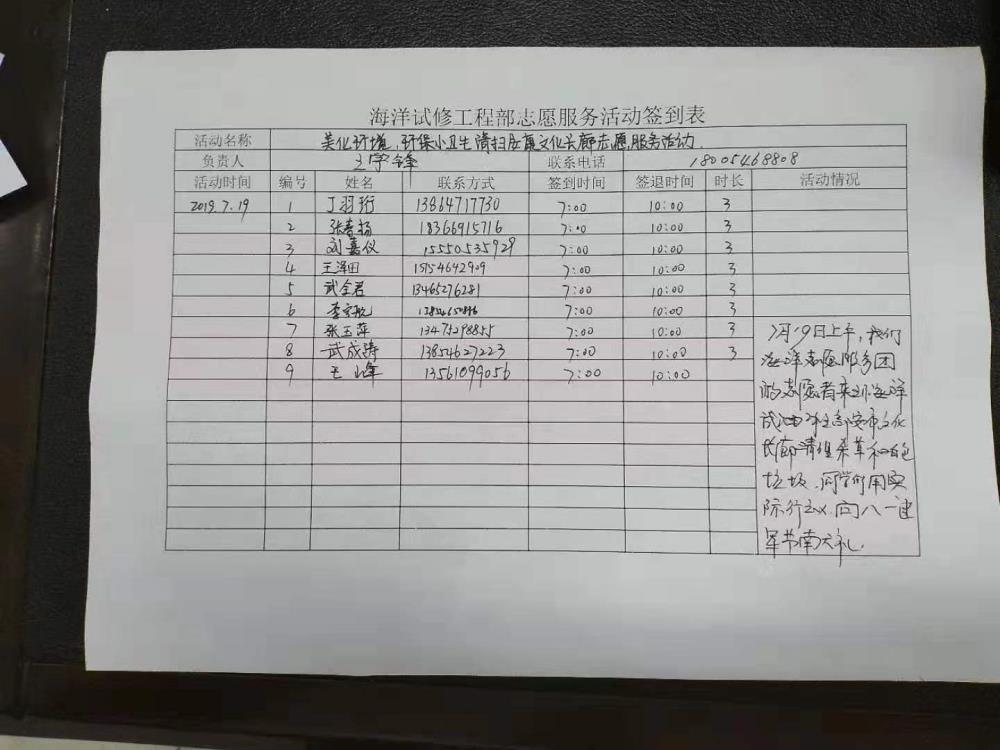 海洋试修工程部志愿服务活动签到表
活动名称 美化环境,环保小卫生清扫 文化长廊志愿服务活动.
负责人 王学锋 联系电话 18005468808
活动时间 编号 姓名 联系方式 签到时间 签退时间 时长 活动情况
2019.7.19 1 丁羽珩 13864717730 7:00 10:00 3
2 张春扬 18366915716 7:00 10:00 3
3 刘嘉仪 15550535929 7:00 10:00 3
4 王泽田 15154642909 7:00 10:00 3
5 武全君 13465276281 7:00 10:00 3
6 李宗航 7:00 10:00 3
7 张玉萍 7:00 10:00 3
8 武成涛 13854627223 7:00 10:00 3
9 王 峰 13561099056 7:00 10:00
7月19日上午,我们
海洋志愿服务团
的志愿者来到海洋
文化
长廊清理杂草和白色
垃圾.同学们用实
际行动向八一建
军节献礼.